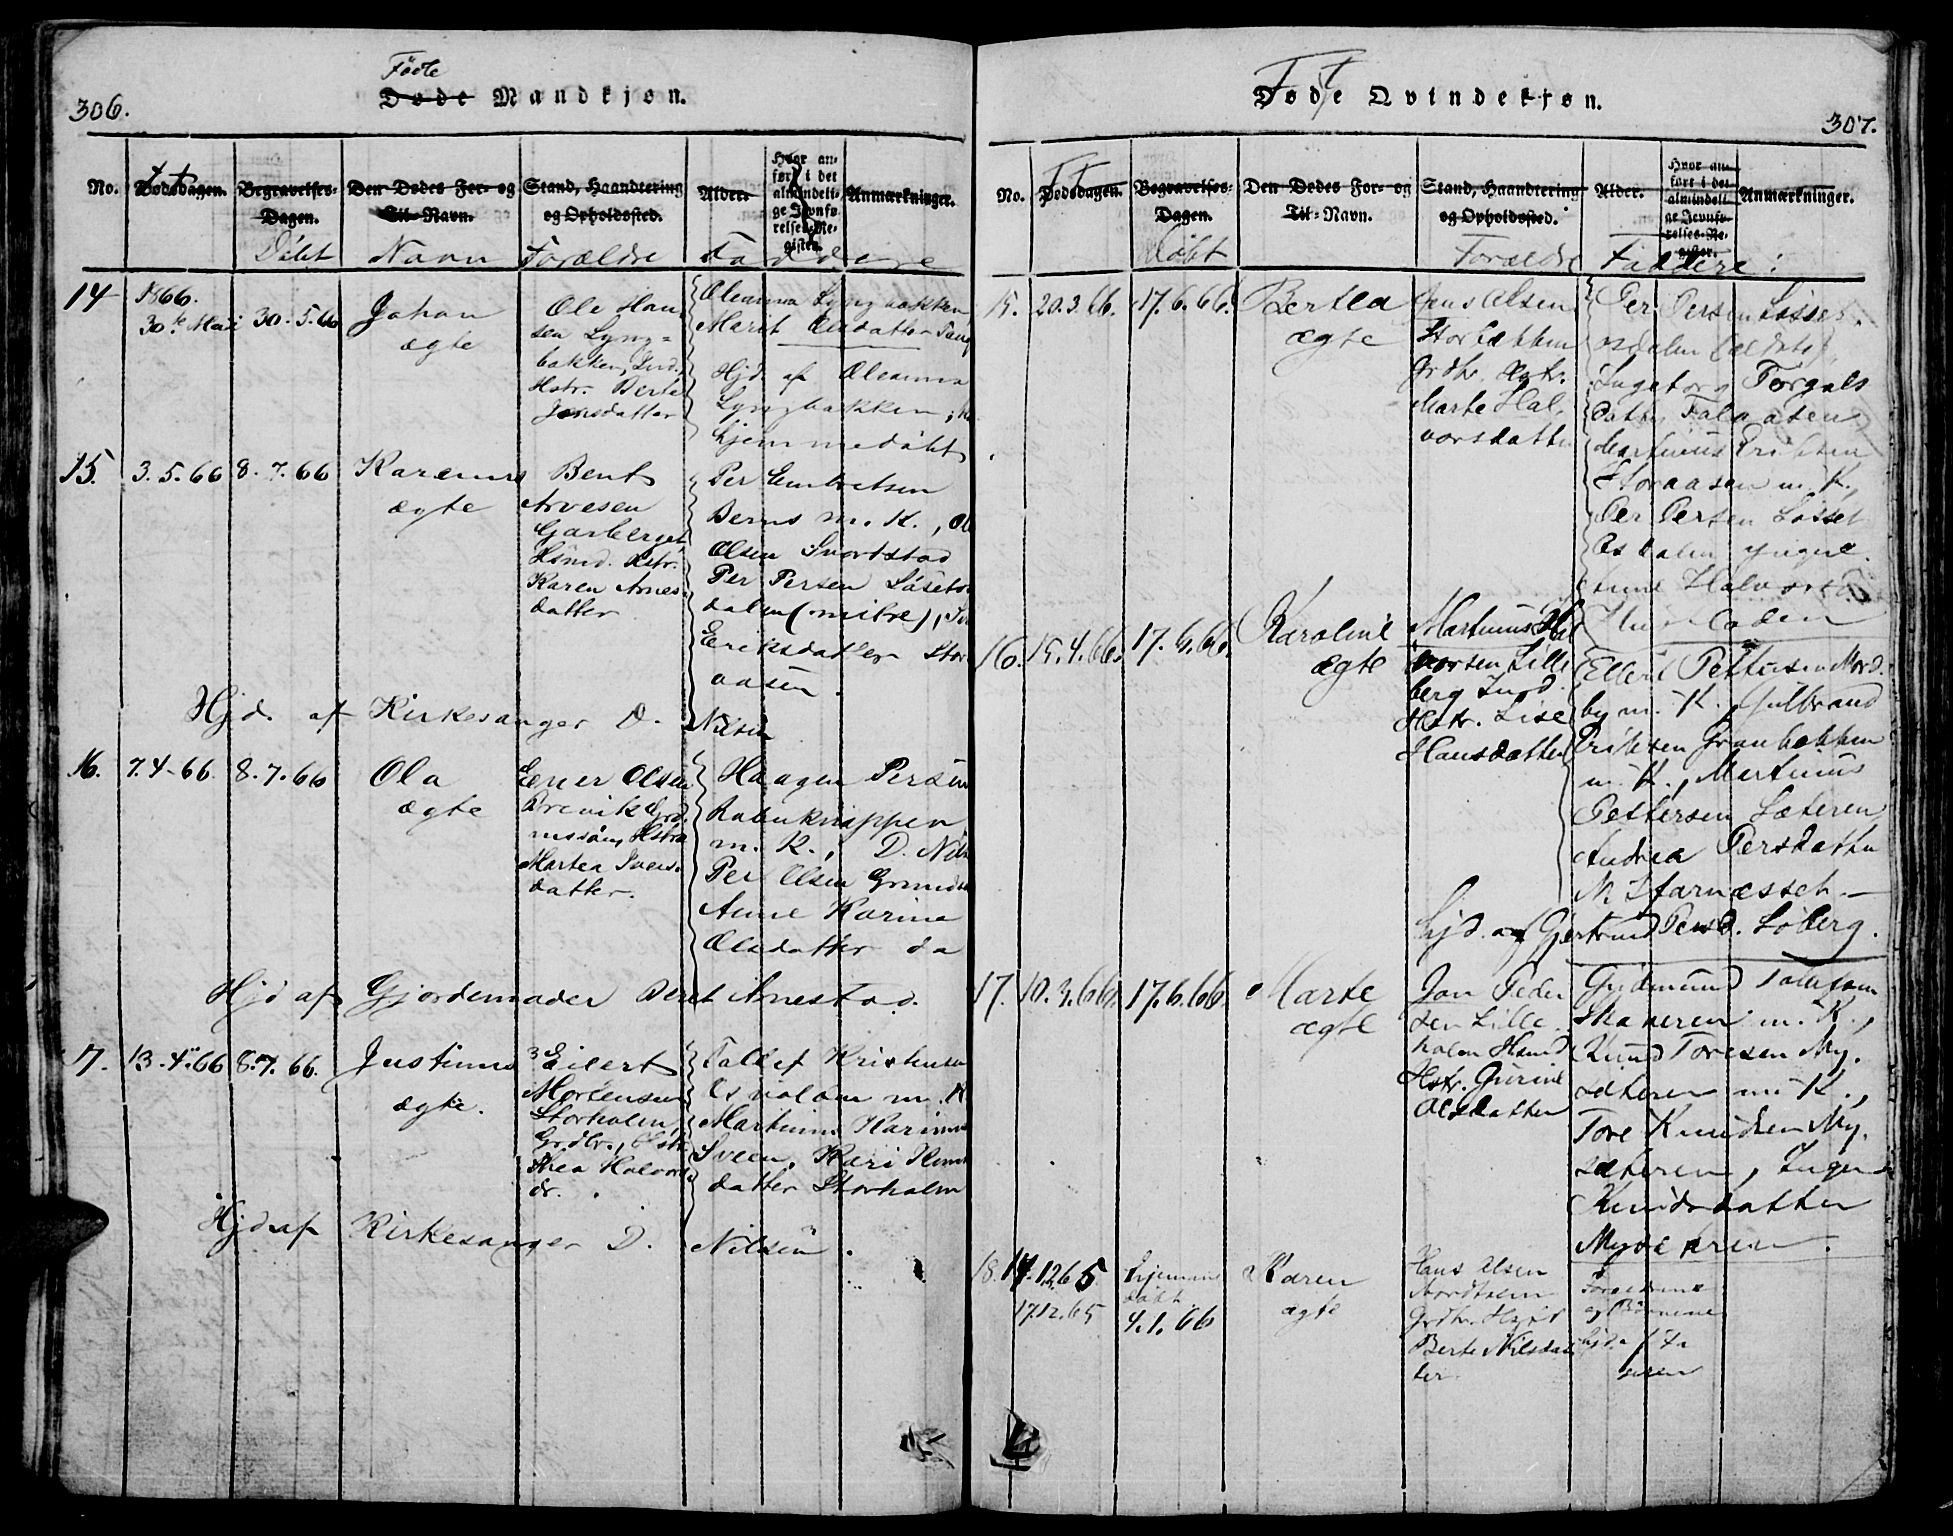 306.
Föde
Døde Mandkjøn.
No.
Dødsdagen.
Begravelses-
Dagen.
Den Dødes For- og
Til-Navn.
Stand, Haandtering
og Opholdssted.
Alder.
Hvor an-
ført i det
almindeli-
ge Jevnfø-
relses-Re-
gister.
Anmærkninger.
Döbt
Navn
Forældre
Faddere
14
1866.
30te Mai
30.5.66
Johan
ægte
Ole Han-
sen Lyng-
bakken, Ind.
Hstr. Berte
Jensdatter
Oleanna Lyngbakken
Marit Olsdatter
Hjd. af Oleanna
Lyngbakken,
hjemmedöbt
15.
3.5.66
8.7.66
Karenus
ægte
Bent
Arvesen
Garberget
Hsmd. Hstr.
Karen Arnes-
datter
Per Embretsen
Berns m. K.,
Olsen Snortstad
Per Persen Lösetos
dalen (mitre),
Eriksdatter Stor
aasen.
Hjd. af Kirkesanger D. Nilsen
16.
7.4.66.
8.7.66
Ola
ægte
Ener Olsen
Brevik Grd.
Hstr.
Martea Ivers-
datter.
Haagen Persen
Rabuknappen
m. K., D. Nils
Per Olsen Grinds
Anne Karine
Olsdatter da
Hjd af Gjordemoder Beret Arnestad.
17.
13.4.66
8.7.66.
Justinus
ægte.
Eilert
Mortensen
Storholm,
Grdbr., Hstr.
Thea Halvors
dr.
Tollef Kristensen
m. K.
Martinus Karinus
Sveen, Kari
datter Storholm
Hjd af Kirkesanger D. Nilsen.
Føde Qvindekjøn.
307.
No.
Dødsdagen.
Begravelses-
Dagen.
Den Dødes For- og
Til-Navn.
Stand, Haandtering
og Opholdssted.
Alder.
Hvor an-
ført i det
almindeli-
ge Jevnfø-
relses-Re-
gister.
Anmærkninger.
Döbt
Forældre
Faddere:
15.
20.3.66.
17.6.66.
Bertea
ægte
Jens Olsen
Storbækken
Grdbr. Hstr.
Marte Hal-
vorsdatter
Per Persen Lösset-
osdalen (ældste),
Ingeborg Torgals
datter Falaasen
Martinius Eriksen
Storaasen m. K.,
Per Persen Lösset
osdalen yngere.
Anne Halvorsd.
16.
15.4.66.
17.6.66.
Karoline
ægte
Martinus Hal
vorsen Lille
berg Ind.
Hstr. Lise
Hansdatter
Ellert Pettersen Nord-
by m. K., Gulbrand
Eriksen Granbækken
m. K., Martinus
Pettersen Sæteren
Andrea Persdatter
N Stornæsset.—
Hjd. af Gjertrud Persd. Löberg.
17.
10.3.66.
17.6.66.
Marte
ægte
Jon Peder
sen Lille
holen Hsmd
Hstr. Gurine
Olsdatter
Gudmund Tollefsen
Skaveren m. K.,
Knud Toresen My-
sæteren m. K.,
Tore Knudsen My-
sæteren, Inger
Knudsdatter
Mysæteren.
18.
14.12.65
17.12.65
hjemme
döbt
4.1.66
Karen
ægte
Hans Olsen
Nordtsein
Grdbr. Hstr
Berte Nilsdat
ter
Forældrene
og Börnene
hjd. af Fa
deren